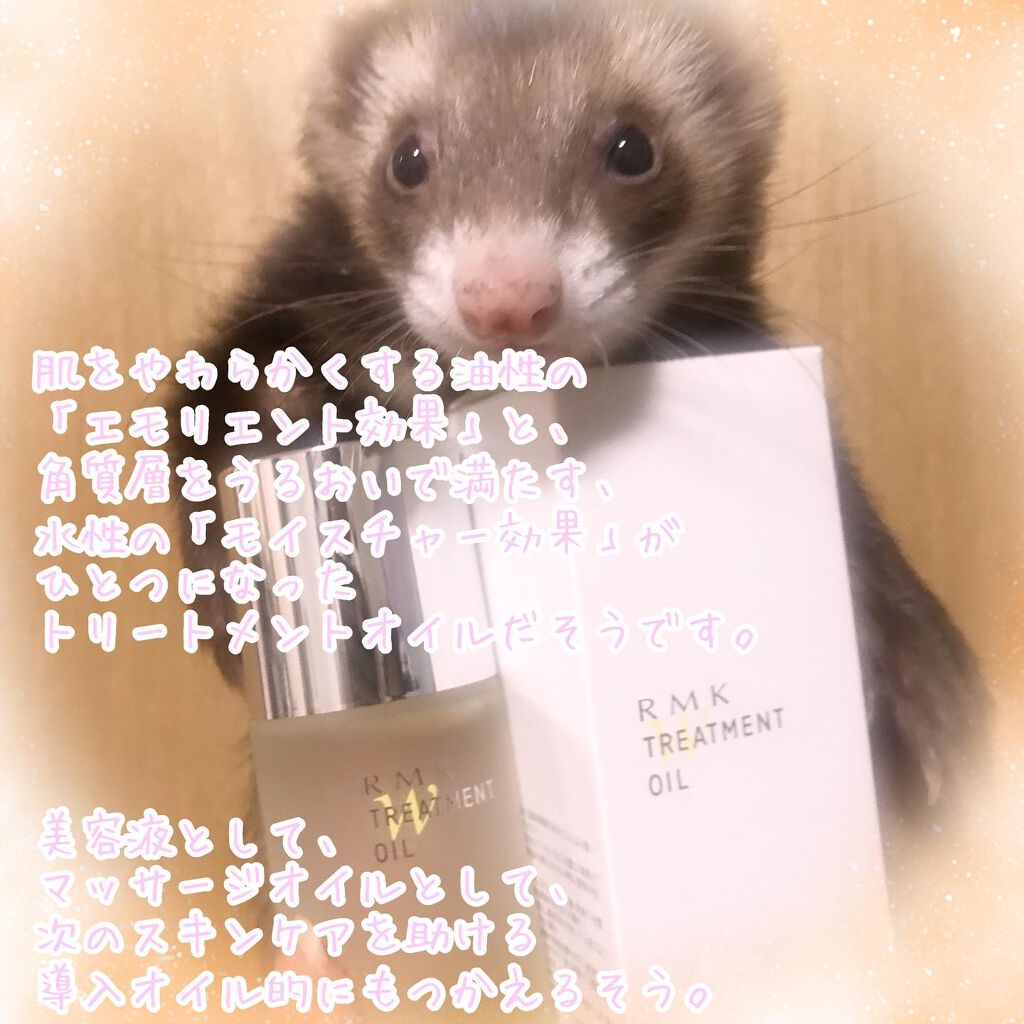 肌をやわらかくする油性の
「エモリエント効果」と、
角質層をうるおいで満たす、
水性の「モイスチャー効果」が
ひとつになった
トリートメントオイルだそうです。
RMK
W
TREATMENT
OIL
RMK
W
TREATMENT
OIL
美容液として、
マッサージオイルとして、
次のスキンケアを助ける
導入オイル的にもつかえるそう。